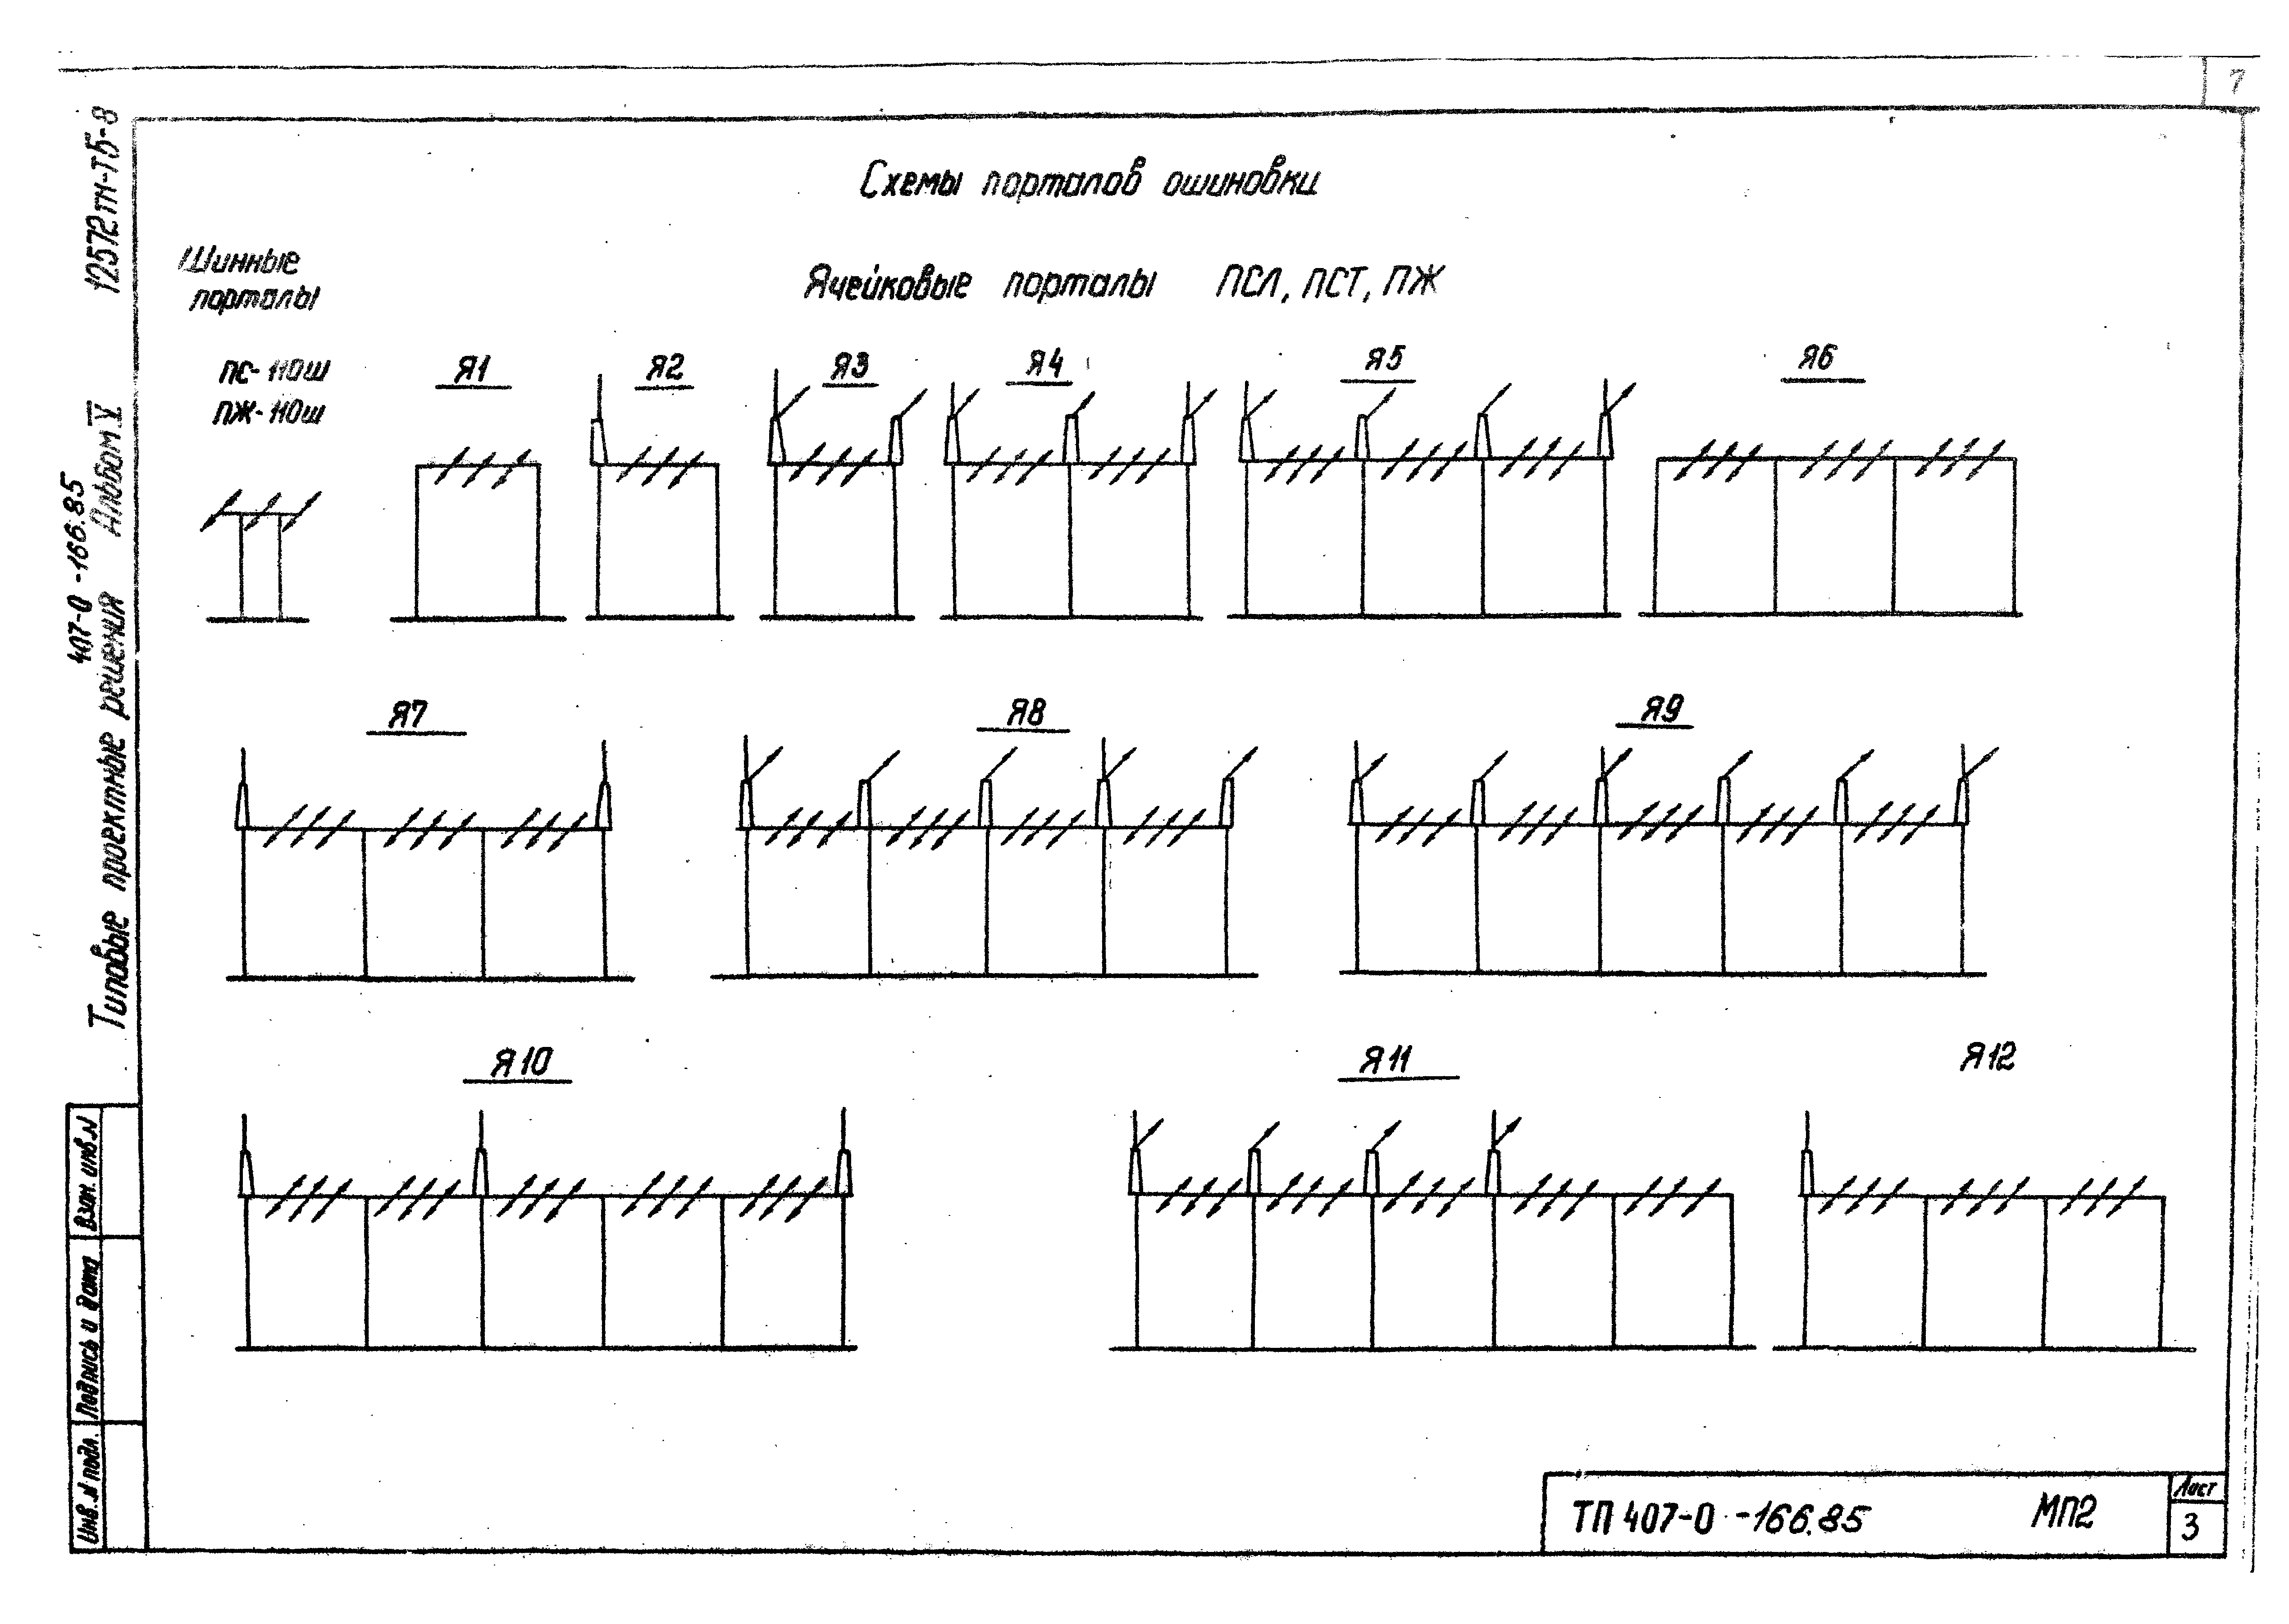 7
Схемы порталов ошиновки
Шинные
порталы
Ячейковые порталы ПСЛ, ПСТ, ПЖ
ПС-110ш
ПЖ-110ш
Я1
Я2
Я3
Я4
Я5
Я6
Я7
Я8
Я9
Я10
Я11
Я12
12572тм-т5-8
Альбом V
407-0-166.85
Типовые проектные решения
Взам. инв. N
Подпись и дата
Инв. N подл.
ТП 407-0-166.85 МП2
Лист
3